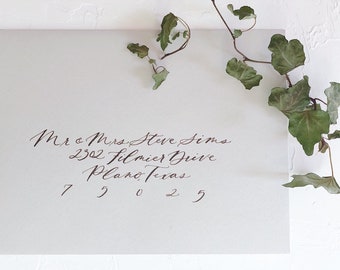 Mr & Mrs Steve Sims
2302 Filmier Drive
Plano Texas
75025